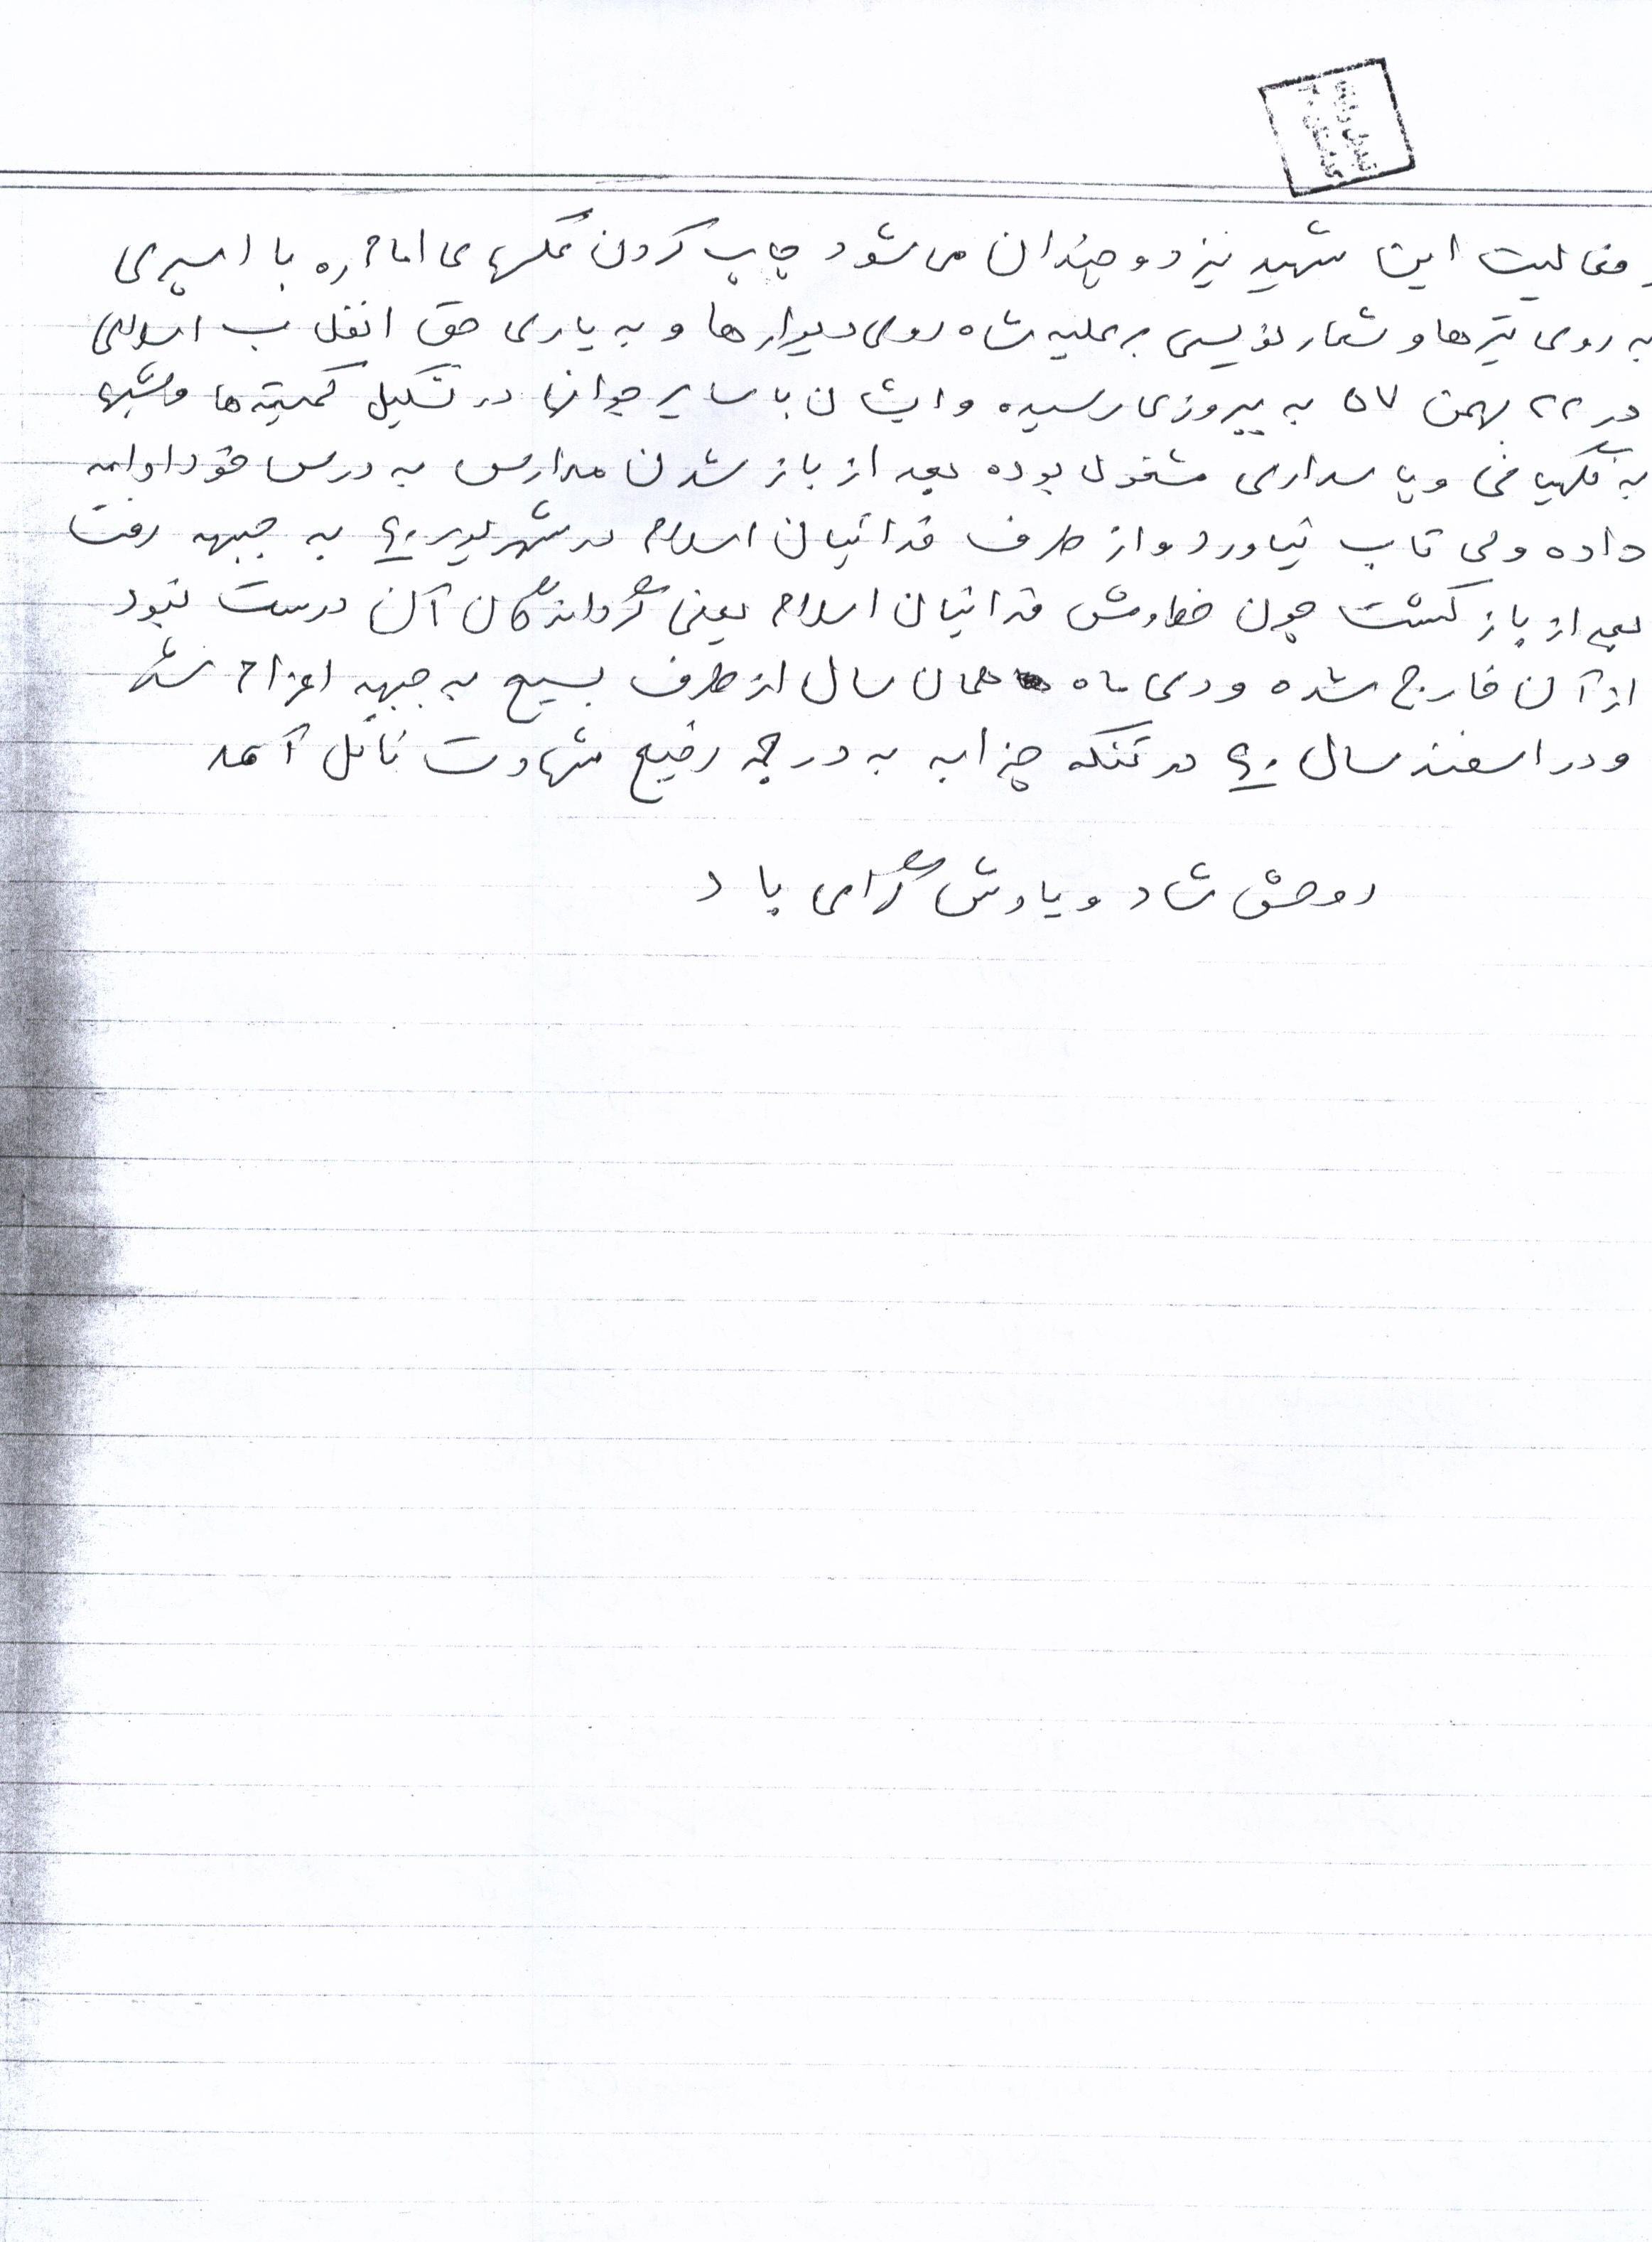 و فعالیت این شهید نیز دو چندان می شود چاپ کردن عکسهای امام ره با اسپری
به روی تیرها و شعار نویسی بر علیه شاه روی دیوارها و به یاری حق انقلاب اسلامی
در ۲۲ بهمن ۵۷ به پیروزی رسیده و ایشان با سایر جوانها در تشکیل کمیته ها و شبها
به نگهبانی و پاسداری مشغول بوده بعد از باز شدن مدارس به درس خود ادامه
داده ولی تاب نیاورد و از طرف فدائیان اسلام در شهریور ۶۰ به جبهه رفت
بعد از بازگشت چون خطوطش فدائیان اسلام یعنی گردانندگان آن درست نبود
از آن خارج شده و دی ماه همان سال از طرف بسیج به جبهه اعزام شد
و در اسفند سال ۶۰ در تنگه چزابه به درجه رفیع شهادت نائل آمد
روحش شاد و یادش گرامی باد